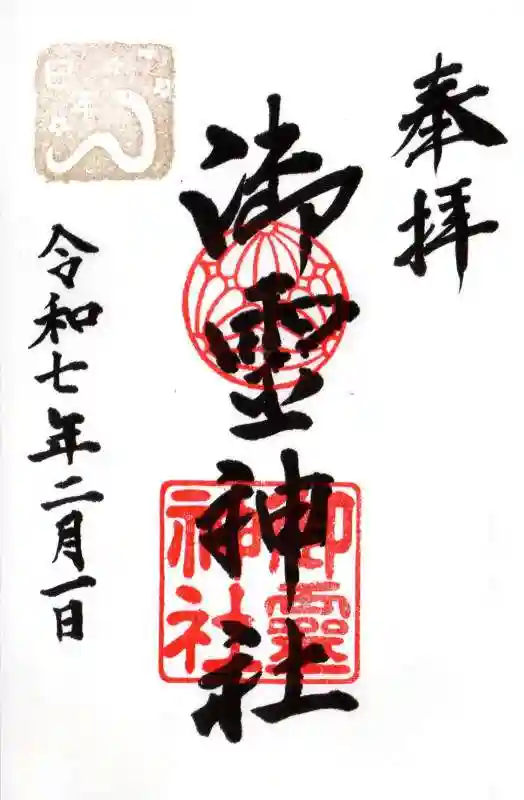 奉拝
御霊神社
御靈
神社
令和七年二月一日